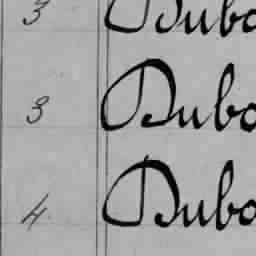 3 Dubo
3 Dubo
4 Dubo